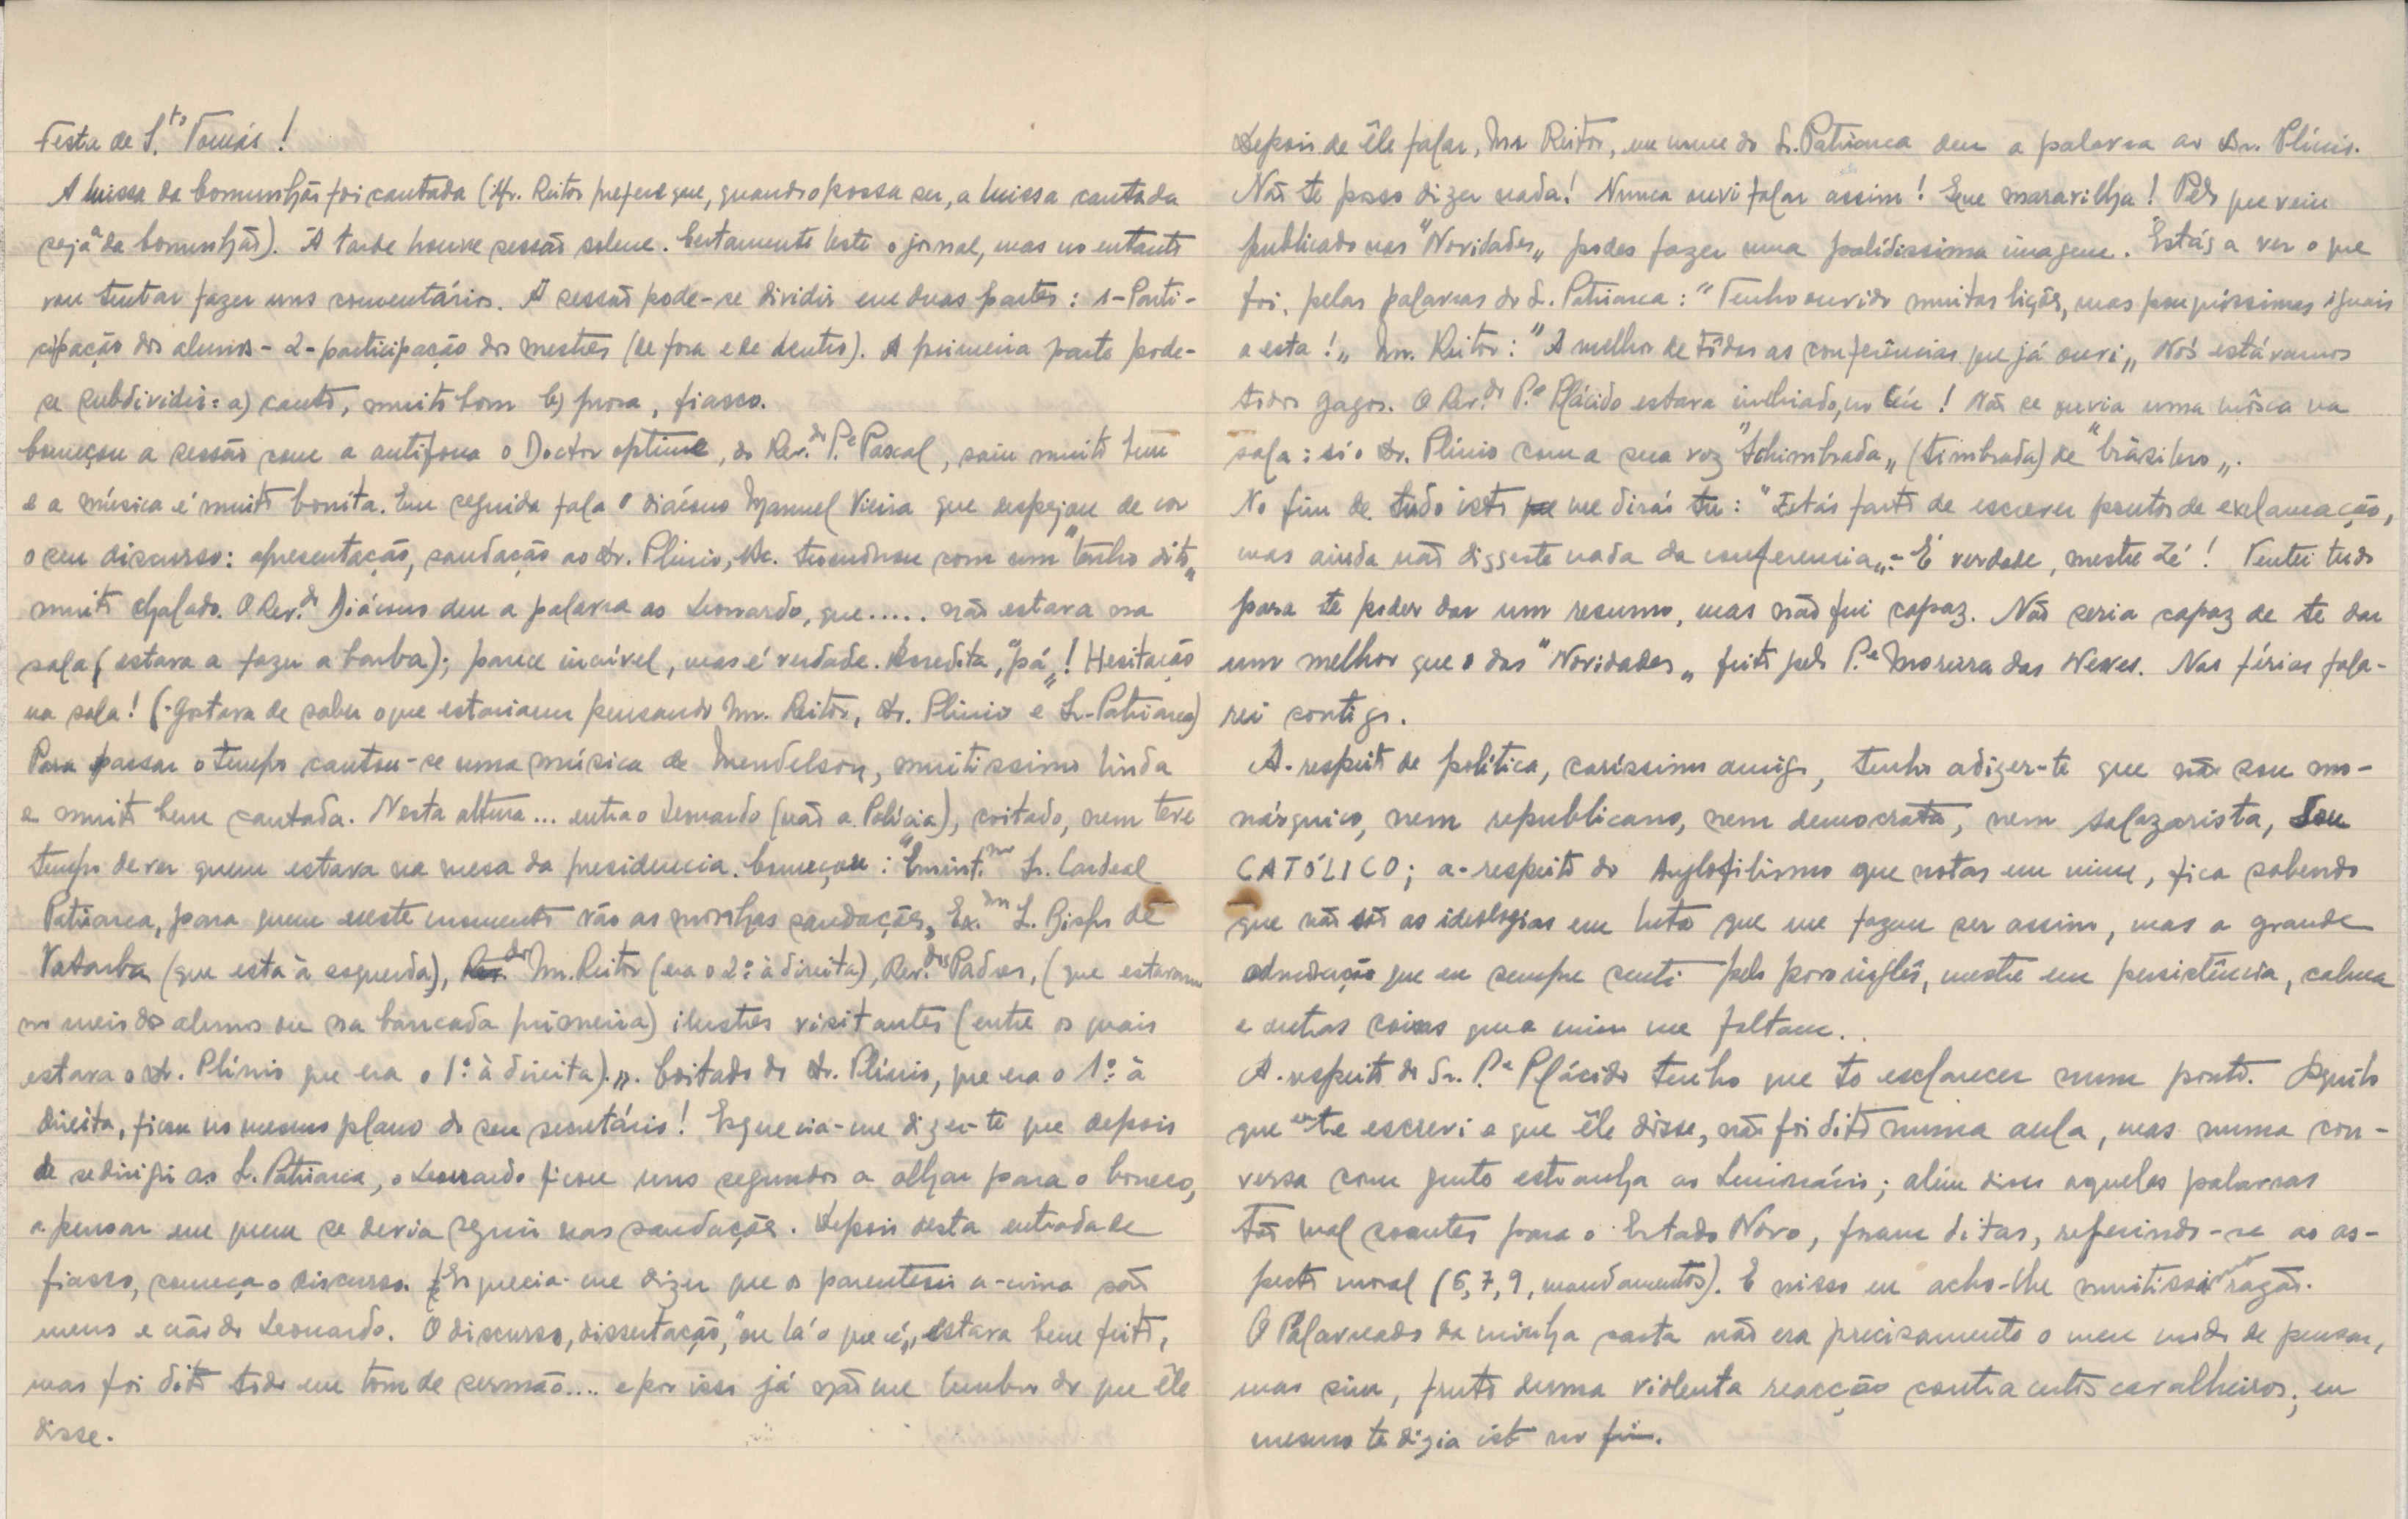 Festa de S.to Tomás!
A missa da Comunhão foi cantada (Mr. Reitor prefere que, quando possa ser, a missa cantada
seja a da Comunhão). À tarde houve sessão solene. Certamente leste o jornal, mas no entanto
vou tentar fazer uns comentários. A sessão pode-se dividir em duas partes: 1-Parti-
cipação dos alunos - 2-participação dos mestres (de fora e de dentro). A primeira parte pode-
se subdividir: a) canto, muito bom b) prosa, fiasco.
Começou a sessão com a antífona o Doctor optime, do Rev.do P.e Pascal, saiu muito bem
e a música é muito bonita. Em seguida fala o diácono Manuel Vieira que despejou de cor
o seu discurso: apresentação, saudação ao Dr. Plínio, etc. terminou com um "tenho dito"
muito chalado. O Rev.do Diácono deu a palavra ao Leonardo, que..... não estava na
sala (estava a fazer a barba); parece incrível, mas é verdade. Acredita, "pá"! Hesitação
na sala! (-Gostava de saber o que estariam pensando Mr. Reitor, Dr. Plinio e Sr. Patriarca)
Para passar o tempo cantou-se uma música de Mendelson, muitissimo linda
e muito bem cantada. Nesta altura... entra o Leonardo (não a Polícia), coitado, nem teve
tempo de ver quem estava na mesa da presidencia. Começou: "Eminent.mo Sr. Cardeal
Patriarca, para quem neste momento vão as minhas saudações, Ex.mo S. Bispo de
Vatarba (que esta à esquerda), Rev.do Mr. Reitor (era o 2º à direita), Rev.dos Padres, (que estavam
no meio dos alunos ou na bancada primeira) ilustres visitantes (entre os quais
estava o Dr. Plínio que era o 1º à direita)". Coitado do Dr. Plínio, que era o 1º à
direita, ficou no mesmo plano do seu secretário! Esquecia-me dizer-te que depois
de se dirigir ao S. Patriarca, o Leonardo ficou uns segundos a olhar para o boneco,
a pensar em quem se devia seguir nas saudações. Depois desta entrada de
fiasco, começa o discurso. Esquecia-me dizer que os parentesis a-cima são
meus e não do Leonardo. O discurso, dissertação, "ou lá o que é", estava bem feito,
mas foi dito todo em tom de sermão.... e por isso já não me lembro do que êle
disse.
Depois de êle falar, Mr Reitor, em nome do S. Patriarca deu a palavra ao Dr. Plínio.
Não te posso dizer nada! Nunca ouvi falar assim! Que maravilha! Pelo que veiu
publicado nas "Novidades" podes fazer uma palidissima imagem. Estás a ver o que
foi, pelas palavras do S. Patriarca: "Tenho ouvido muitas lições, mas pouquíssimas iguais
a esta!" Mr. Reitor: "A melhor de tôdas as conferências que já ouvi" Nós estávamos
todos gagos. O Rev.do P.e Plácido estava inebriado, no Céu! Não se ouvia uma môsca na
sala: só o Dr. Plínio com a sua voz "tchimbrada" (timbrada) de "brásiloro".
No fim de tudo isto me dirás tu: "Estás farto de escrever pontos de exclamação,
mas ainda não disseste nada da conferencia". - É verdade, mestre Zé! Tentei tudo
para te poder dar um resumo, mas não fui capaz. Não seria capaz de te dar
um melhor que o das "Novidades" feito pelo P.e Moreira das Neves. Nas férias fala-
rei contigo.
A-respeito de política, caríssimo amigo, tenho a dizer-te que não sou mo-
nárquico, nem republicano, nem democrata, nem salazarista, Sou
CATÓLICO; a-respeito do Anglofilismo que notas em mim, fica sabendo
que não são as ideologias em luta que me fazem ser assim, mas a grande
admiração que eu sempre senti pelo povo inglês, mestre em persistência, calma
e outras coisas que a mim me faltam..
A-respeito do Sr. P.e Plácido tenho que te esclarecer num ponto. Aquilo
que eu te escrevi e que êle disse, não foi dito numa aula, mas numa con-
versa com gente estranha ao Seminário; além disso aquelas palavras
tão mal soantes para o Estado Novo, foram ditas, referindo-se ao as-
pecto moral (6, 7, 9, mandamentos). E nisso eu acho-lhe muitissimo razão.
O Palavreado da minha carta não era precisamente o meu modo de pensar,
mas sim, fruto duma violenta reacção contra certos cavalheiros; eu
mesmo te dizia isto no fim.